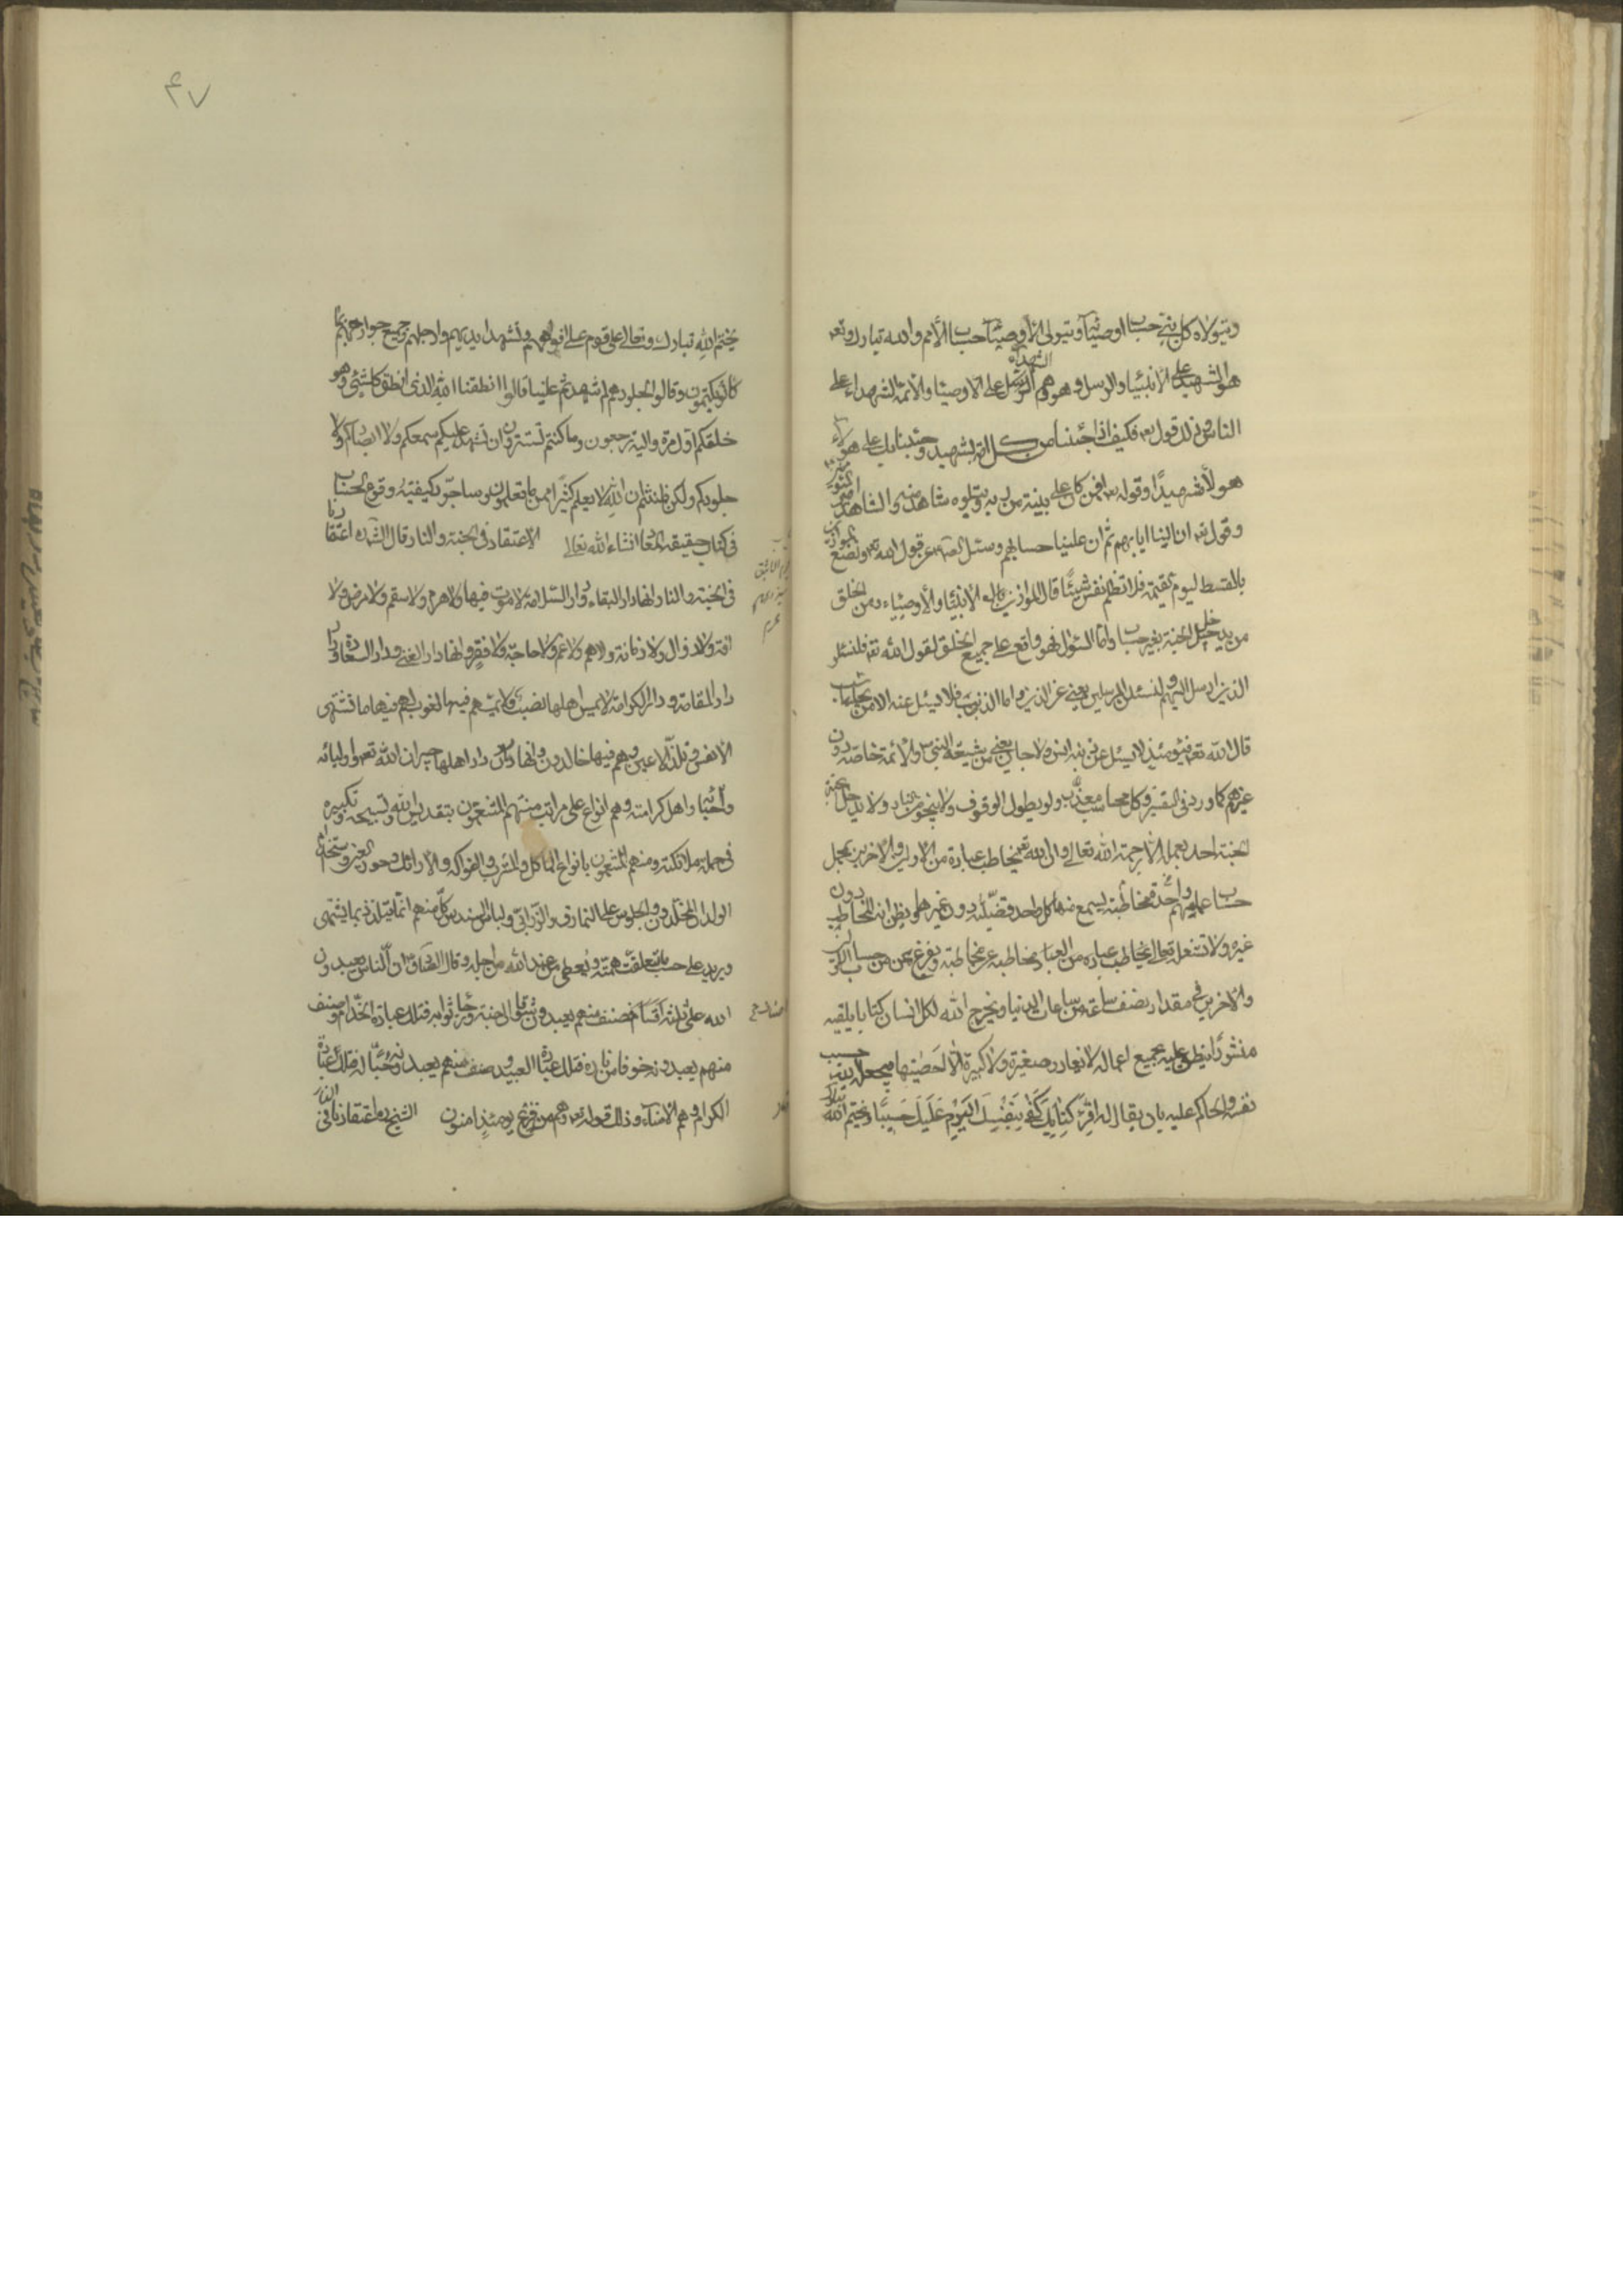 ويتولاه كل نبي حساب اوصيائه ويتولى الأوصياء حساب الأمم والله تبارك وتعه
هو الشهيد على الأنبياء والرسل وهم الشهداء على الاوصياء والأئمة الشهداء على
الناس وذلك قوله تعه فكيف اذا جئنا من كل امة بشهيد وجئنا بك على هؤلاء
هولاء شهيدًا وقوله تعه افمن كان على بينة من ربه ويتلوه شاهد منه والشاهد امير المؤمنين
وقوله تعه ان الينا ايابهم ثم ان علينا حسابهم وسئل الصه عن قول الله تعه ونضع الموازين
بالقسط ليوم القيمة فلا تظلم نفس شيئًا قال الموازين الأنبياء والأوصياء ومن الخلق
من يدخل الجنة بغير حساب واما السئوال فهو واقع على جميع الخلق لقول الله تعه فلنسئلن
الذين ارسل اليهم ولنسئلن المرسلين يعني عن الدين واما الذنوب فلا يسئل عنه الا من يحاسب
قال الله تعه فيومئذ لا يسئل عن ذنبه انس ولا جان يعني من شيعة النبي والأئمة خاصة دون
غيرهم كما ورد في التفسير وكل محاسب معذب ولو بطول الوقوف ولا ينجو من النار ولا يدخل الجنة
الجنة احد بعمله الا برحمة الله تعالى وان الله تعه يخاطب عباده من الاولين والاخرين بمجمل
حساب عملهم مخاطبة واحدة يسمع منها كل واحد قضيته دون غيرها ويظن انه المخاطب دون
غيره ولا تشغله تعالى مخاطبة عباده من العباد مخاطبة عن مخاطبة ويفرغ من حساب الاولين
والاخرين في مقدار نصف ساعة من ساعات الدنيا ويخرج الله لكل انسان كتابا يلقيه
منشورًا ينطق عليه بجميع اعماله لا يغادر صغيرة ولا كبيرة الا احصيها فيجعله الله حسيب
نفسه والحاكم عليه بان يقال له اقرأ كتابك كفى بنفسك اليوم عليك حسيبًا ويختم الله
۴۷
يختم الله تبارك وتعالى على قوم على افواههم وتشهد ايديهم وارجلهم وجميع جوارحهم بما
كانوا يكتمون وقالوا لجلودهم لم شهدتم علينا قالوا انطقنا الله الذي انطق كل شيئ وهو
خلقكم اول مرة واليه ترجعون وما كنتم تستترون ان يشهد عليكم سمعكم ولا ابصاركم ولا
جلودكم ولكن ظننتم ان الله لا يعلم كثيرًا مما تعملون وساجرد كيفية وقوع الحساب
في كتاب حقيقة المعاد انشاء الله تعالى الاعتقاد في الجنة والنار قال الشيخ ره اعتقادنا
في الجنة والنار انها دار البقاء ودار السلامة لا موت فيها ولا هرم ولا سقم ولا مرض ولا
افة ولا زوال ولا زمانة ولا هم ولا غم ولا حاجة ولا فقر وانها دار الغنى ودار السعادة ودار
دار المقامة ودار الكرامة لا يمس اهلها نصب ولا يمسهم فيها لغوب لهم فيها ما تشتهي
الانفس وتلذ الاعين وهم فيها خالدون وانها دار اهلها جيران الله تعه واوليائه
واحبائه واهل كرامته وهم انواع على مراتب منهم المتنعمون بتقديس الله وتسبيحه وتكبيره
في جملة ملائكته ومنهم المتنعمون بانواع المآكل والمشارب والفواكه والارائك وحور العين واستخدام
الولدان المخلدون والجلوس على النمارق والزرابي ولباس السندس كل منهم انما يتلذذ بما يشتهي
ويريد على حسب ما تعلقت همته ويعطى من عند الله من اجله وقال الصادق ان الناس يعبدون
الله على ثلثة اقسام فصنف منهم يعبدونه شوقا الى جنته ورجاء ثوابه فتلك عبادة الخدام وصنف
منهم يعبدونه خوفا من ناره فتلك عبادة العبيد وصنف منهم يعبدونه حبًا له فتلك عبادة
الكرام وهم الامناء وذلك قوله تعه وهم من فزع يومئذ امنون الشيخ ره اعتقادنا في النار